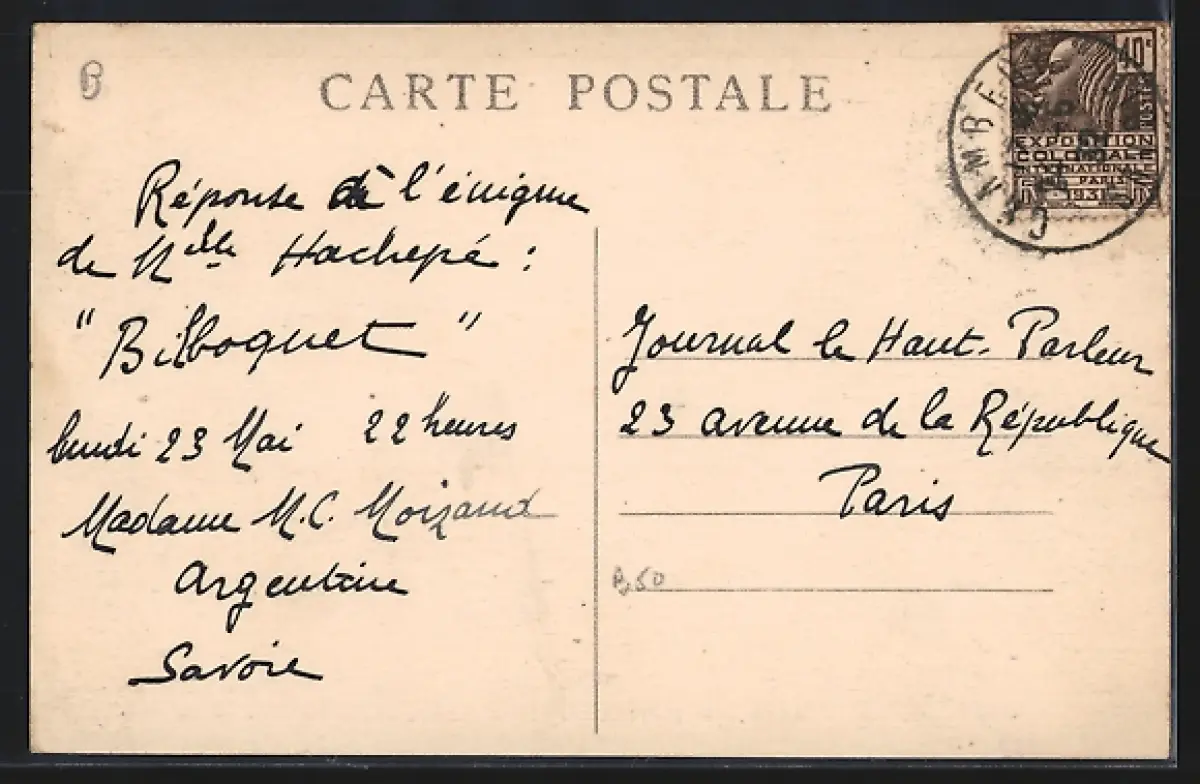 B
CARTE POSTALE
40c
POSTES
EXPOSITION
COLONIALE
INTERNATIONALE
PARIS
1931
Réponse à l'énigme
de Mlle Hachepé :
"Bilboquet"
lundi 23 Mai 22 heures
Madame M.C. Moizand
Argentine
Savoie
Journal le Haut-Parleur
23 avenue de la République
Paris
B50